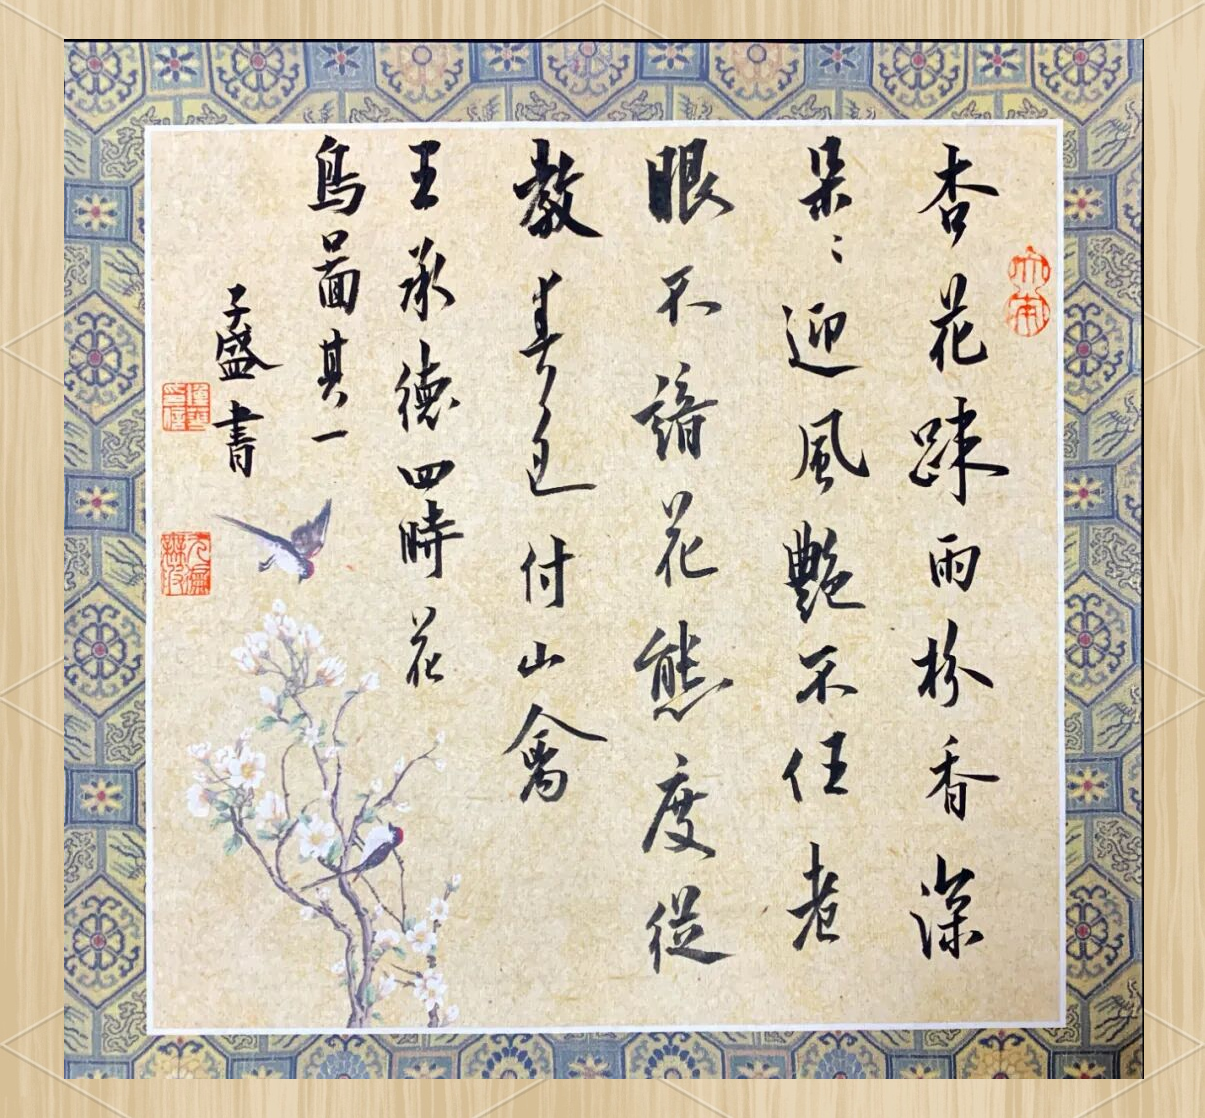 杏花踈雨粉香深
朵〻迎風艷不任老
眼不諳花態度從
教春色付山禽
王承德四時花
鳥啚其一
子盛書